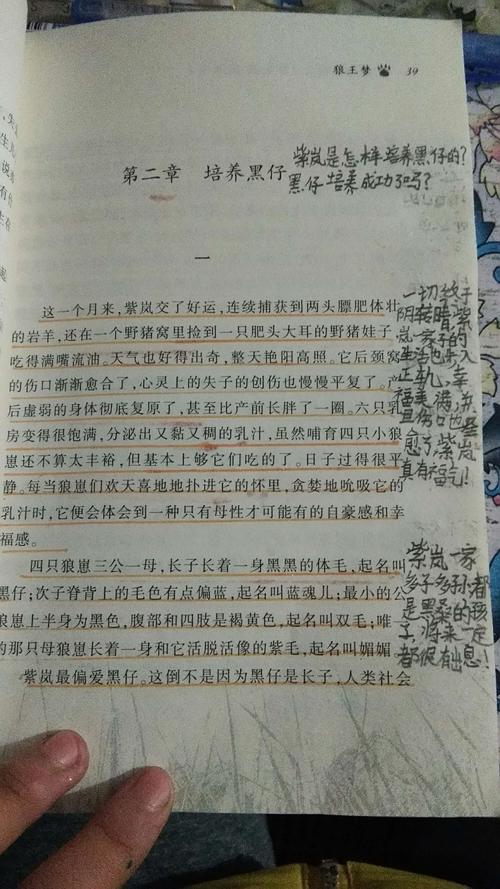 狼王梦 39
第二章 培养黑仔
紫岚是怎样培养黑仔的?
黑仔培养成功了吗?
一
这一个月来,紫岚交了好运,连续捕获到两头膘肥体壮
的岩羊,还在一个野猪窝里捡到一只肥头大耳的野猪娃子,
吃得满嘴流油。天气也好得出奇,整天艳阳高照。它后颈窝
的伤口渐渐愈合了,心灵上的失子的创伤也慢慢平复了。产
后虚弱的身体彻底复原了,甚至比产前长胖了一圈。六只乳
房变得很饱满,分泌出又黏又稠的乳汁,虽然哺育四只小狼
崽还不算太丰裕,但基本上够它们吃的了。日子过得很平
静。每当狼崽们欢天喜地地扑进它的怀里,贪婪地吮吸它的
乳汁时,它便会体会到一种只有母性才可能有的自豪感和幸
福感。
一切终于
阴转晴了,紫
岚一家的
生活也步入
正轨,幸
福美满,并
且伤口也
愈了,紫岚
真有福气!
四只狼崽三公一母,长子长着一身黑黑的体毛,起名叫
黑仔;次子脊背上的毛色有点偏蓝,起名叫蓝魂儿;最小的公
狼崽上半身为黑色,腹部和四肢是褐黄色,起名叫双毛;唯
的那只母狼崽长着一身和它活脱活像的紫毛,起名叫媚媚
紫岚最偏爱黑仔。这倒不是因为黑仔是长子,人类社会
紫岚一家
多子多孙,都
是黑桑的孩
子,将来一定
都很有出息!